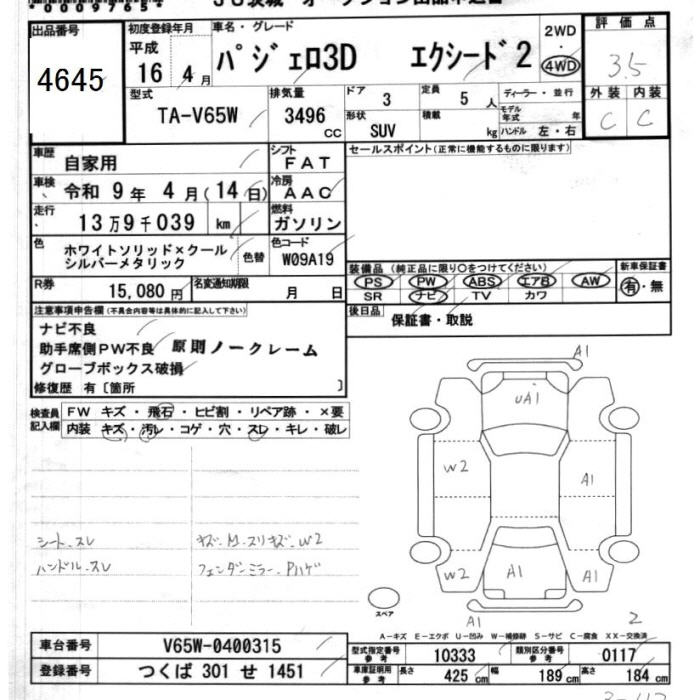 *0009765*
JU茨城 オークション出品申込書
出品番号
4645
初度登録年月
平成
16 4 月
車名・グレード
パジェロ3D エクシード2
2WD
・
4WD
評価点
3.5
外装 内装
C C
型式
TA-V65W
排気量
3496
CC
ドア 3
定員 5 人
形状 SUV
積載 kg
ディーラー・並行
モデル年式 年
ハンドル 左・右
車歴 自家用
シフト FAT
セールスポイント(正常に機能するものに限ります)
車検 令和 9 年 4 月(14 日)
冷房 AAC
走行 13万9千039 km
燃料 ガソリン
色 ホワイトソリッド×クール
シルバーメタリック
色替
色コード
W09A19
装備品 (純正品に限り○をつけてください)
新車保証書
PS PW ABS エアB AW
有・無
SR ナビ TV カワ
R券 15,080 円
名変通知期限 月 日
後日品 保証書・取説
注意事項申告欄(不具合内容等は具体的に記入して下さい)
ナビ不良
助手席側PW不良 原則ノークレーム
グローブボックス破損
修復歴 有〔箇所 〕
検査員記入欄
FW キズ・飛石・ヒビ割・リペア跡・×要
内装 キズ・汚レ・コゲ・穴・スレ・キレ・破レ
A1
UA1
W2
A1
A1
W2
A1
A1
2
シート.スレ
ハンドル.スレ
キズ.M.スリキズ.W2
フェンダーミラー.Pハゲ
スペア
A-キズ E-エクボ U-凹み W-補修跡 S-サビ C-腐食 XX-交換済
車台番号 V65W-0400315
登録番号 つくば 301 せ 1451
型式指定番号 参考 10333
類別区分番号 参考 0117
車庫証明用 参考
長さ 425 cm 幅 189 cm 高さ 184 cm